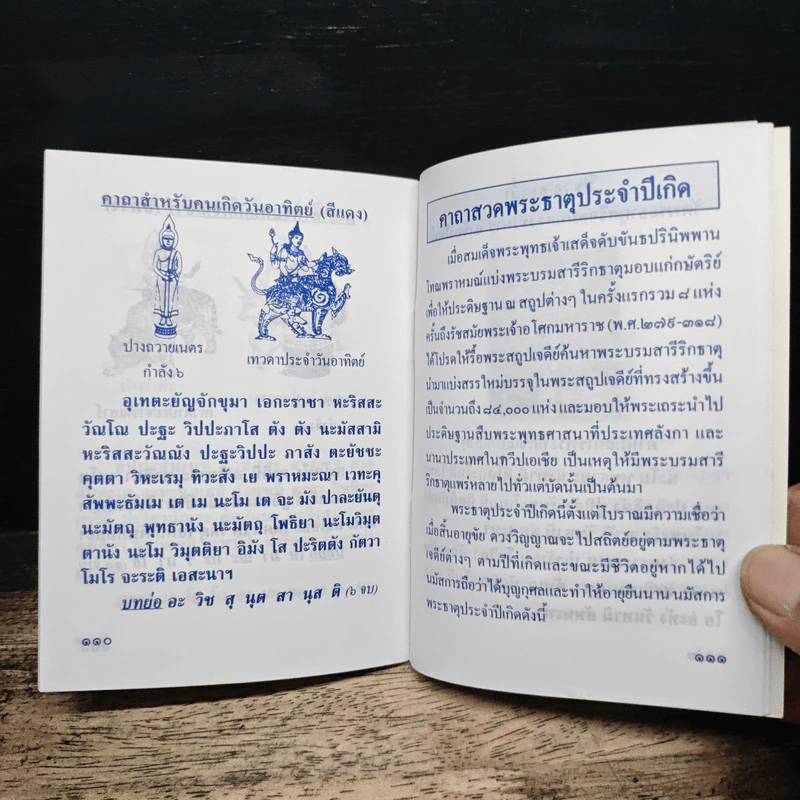 คาถาสำหรับคนเกิดวันอาทิตย์ (สีแดง)
ปางถวายเนตร
กำลัง ๖
เทวดาประจำวันอาทิตย์
อุเทตะยัญจักขุมา เอกะราชา หะริสสะ
วัณโณ ปะฐะ วิปปะภาโส ตัง ตัง นะมัสสามิ
หะริสสะวัณณัง ปะฐะวิปปะ ภาสัง ตะยัชชะ
คุตตา วิหะเรมุ ทิวะสัง เย พราหมะณา เวทะคุ
สัพพะธัมเม เต เม นะโม เต จะ มัง ปาละยันตุ
นะมัตถุ พุทธานัง นะมัตถุ โพธิยา นะโมวิมุต
ตานัง นะโม วิมุตติยา อิมัง โส ปะริตตัง กัตวา
โมโร จะระติ เอสะนาฯ
บทย่อ อะ วิช สุ นุต สา นุส ติ (๖ จบ)
๑๑๐
คาถาสวดพระธาตุประจำปีเกิด
เมื่อสมเด็จพระพุทธเจ้าเสด็จดับขันธปรินิพพาน
โทณพราหมณ์แบ่งพระบรมสารีริกธาตุมอบแก่กษัตริย์
เพื่อให้ประดิษฐาน ณ สถูปต่างๆ ในครั้งแรกรวม ๘ แห่ง
ครั้นถึงรัชสมัยพระเจ้าอโศกมหาราช (พ.ศ.๒๗๙-๓๑๘)
ได้โปรดให้รื้อพระสถูปเจดีย์ค้นหาพระบรมสารีริกธาตุ
นำมาแบ่งสรรใหม่บรรจุในพระสถูปเจดีย์ที่ทรงสร้างขึ้น
เป็นจำนวนถึง ๘๔,๐๐๐ แห่ง และมอบให้พระเถระนำไป
ประดิษฐานสืบพระพุทธศาสนาที่ประเทศลังกา และ
นานาประเทศในทวีปเอเชีย เป็นเหตุให้มีพระบรมสารี
ริกธาตุแพร่หลายไปทั่วแต่บัดนั้นเป็นต้นมา
พระธาตุประจำปีเกิดนี้ตั้งแต่โบราณมีความเชื่อว่า
เมื่อสิ้นอายุขัย ดวงวิญญาณจะไปสถิตย์อยู่ตามพระธาตุ
เจดีย์ต่างๆ ตามปีที่เกิดและขณะมีชีวิตอยู่หากได้ไป
นมัสการถือว่าได้บุญกุศลและทำให้อายุยืนนาน นมัสการ
พระธาตุประจำปีเกิดดังนี้
๑๑๑